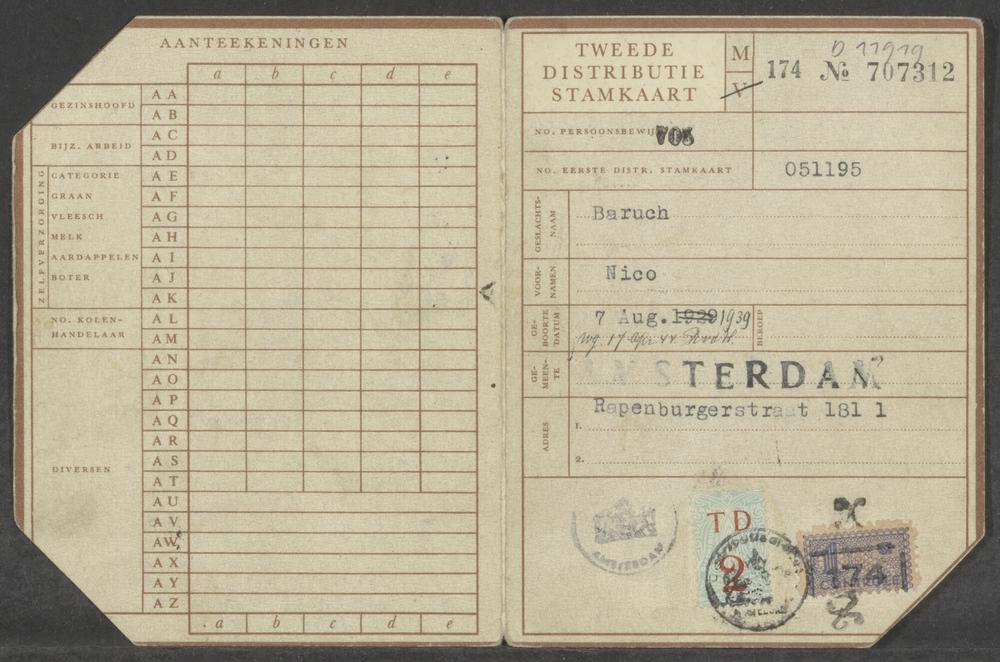 AANTEEKENINGEN
a b c d e
GEZINSHOOFD
A A
A B
BIJZ. ARBEID
A C
A D
ZELFVERZORGING
CATEGORIE
A E
GRAAN
A F
VLEESCH
A G
MELK
A H
AARDAPPELEN
A I
BOTER
A J
A K
NO. KOLEN-
HANDELAAR
A L
A M
DIVERSEN
A N
A O
A P
A Q
A R
A S
A T
A U
A V
A W
A X
A Y
A Z
a b c d e
TWEEDE
DISTRIBUTIE
STAMKAART
M
V
D 11919
174 № 707312
NO. PERSOONSBEWIJS
NO. EERSTE DISTR. STAMKAART 051195
GESLACHTS-
NAAM
Baruch
VOOR-
NAMEN
Nico
GE-
BOORTE
DATUM
7 Aug. 1929 1939
BEROEP
GE-
MEEN-
TE
AMSTERDAM
ADRES
Rapenburgerstraat 181 1
1.
2.
AMSTERDAM
TD
2
174